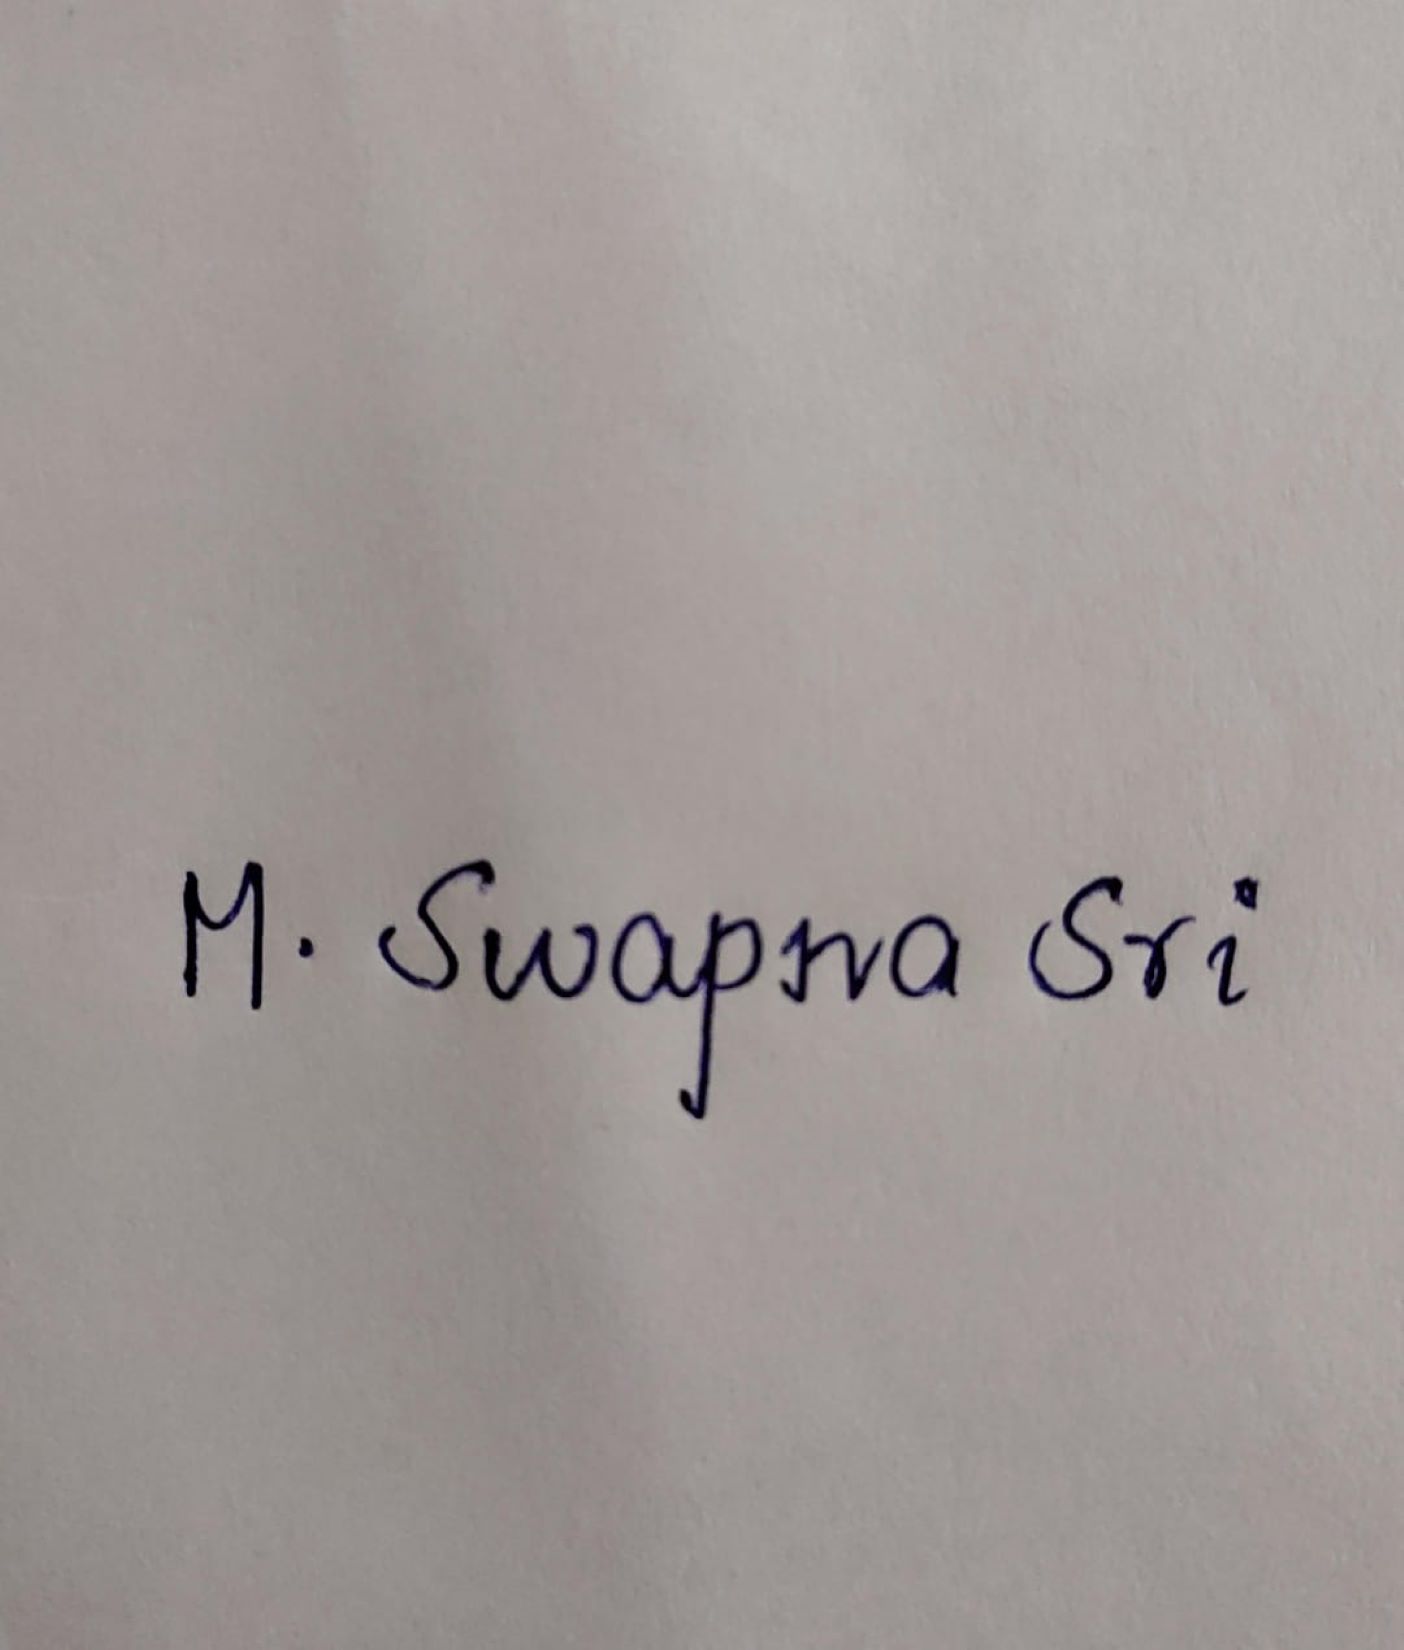 M. Swapna Sri